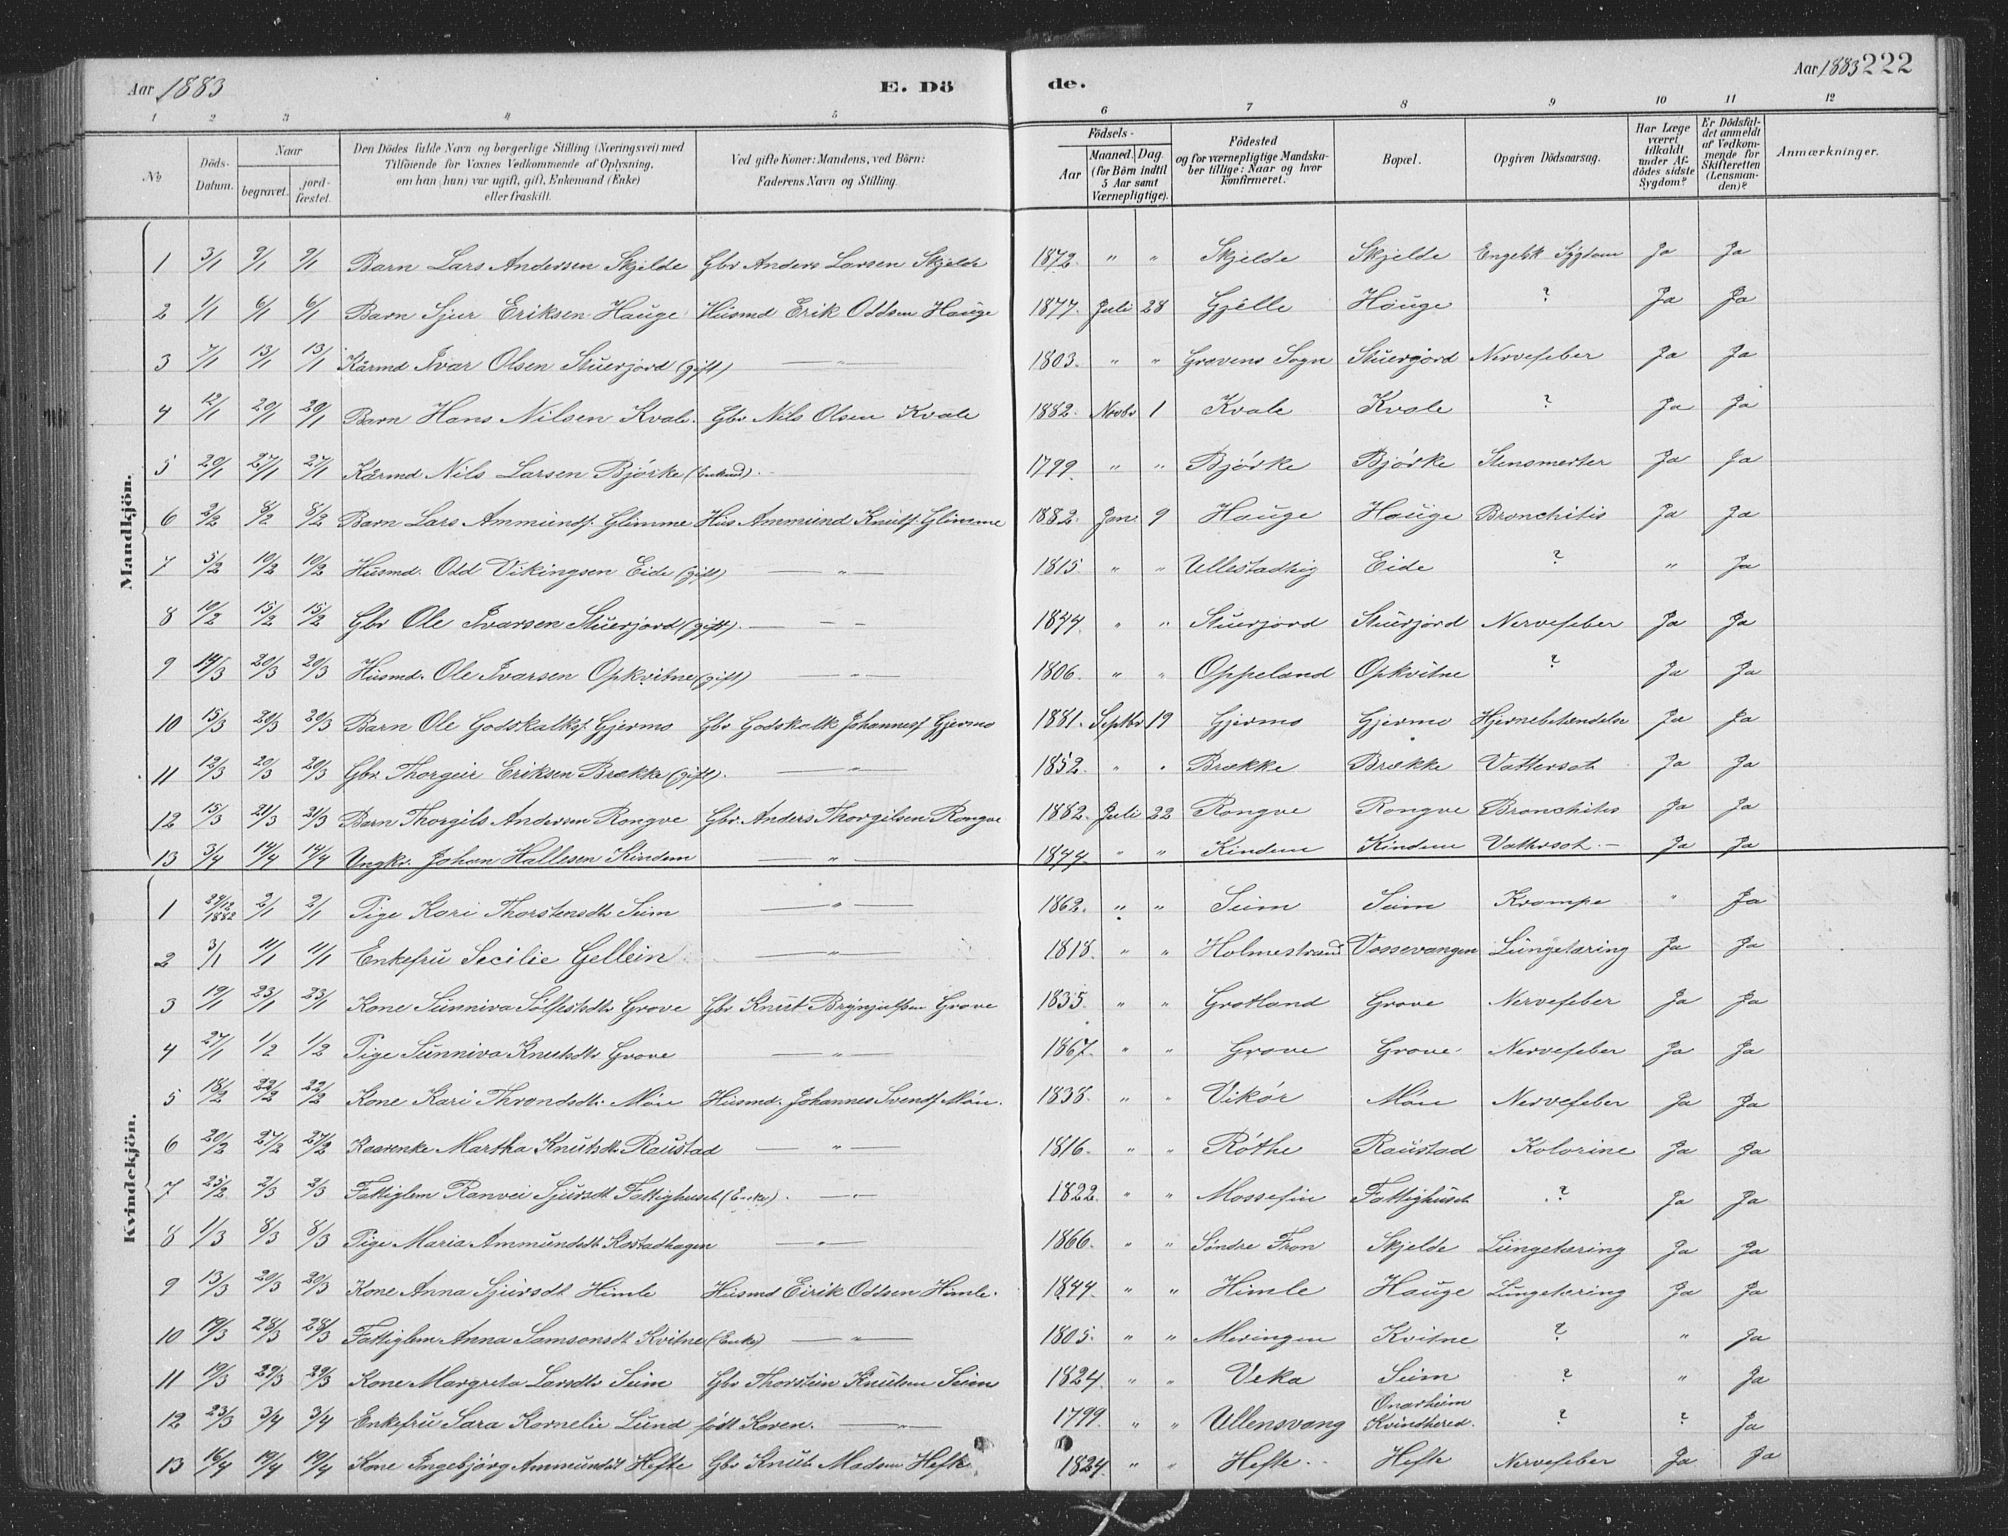 Aar 1883
E. Dö
de.
Aar 1883 222
1 2 3 4 5 6 7 8 9 10 11 12
No
Döds-Datum.
Naar
begravet.
jord-fæstet.
Den Dödes fulde Navn og borgerlige Stilling (Næringsvei) med Tilföiende for Voxnes Vedkommende af Oplysning, om han (hun) var ugift, gift, Enkemand (Enke) eller fraskilt.
Ved gifte Koner: Mandens, ved Börn: Faderens Navn og Stilling.
Födsels-
Aar
Maaned. Dag.
(for Börn indtil 5 Aar samt Værnepligtige).
Födested og for værnepligtige Mandska-ber tillige: Naar og hvor konfirmeret.
Bopæl.
Opgiven Dödsaarsag.
Har Læge været tilkaldt under Af-dödes sidste Sygdom?
Er Dödsfal-det anmeldt af Vedkom-mende for Skifteretten (Lensman-den)?
Anmærkninger.
Mandkjön.
1 3/1 9/1 9/1 Barn Lars Andersen Skjelde Gbr Anders Larsen Skjelde 1872. " " Skjelde Skjelde Engelsk Sygdom Ja Ja
2 1/1 6/1 6/1 Barn Sjur Eriksen Hauge Husmd Erik Oddsen Hauge 1877. Juli 28 Gjelle Hauge ? Ja Ja
3 7/1 13/1 13/1 Kårmd Ivar Olsen Stuerjord (gift) — " — 1803. " " Gravens Sogn Stuerjord Nervefeber Ja Ja
4 12/1 20/1 20/1 Barn Hans Nilsen Kvale. Gbr Nils Olsen Kvale 1882. Novbr 1 Kvale Kvale ? Ja Ja
5 20/1 27/1 27/1 Kårmd Nils Larsen Bjørke (Enkmd). 1799. " " Bjørke Bjørke Stensmerter Ja Ja
6 2/2 8/2 8/2 Barn Lars Ammundf. Glimme Hus Ammund Knutsf. Glimme 1882. Jan. 9 Hauge Hauge Bronchitis Ja Ja
7 5/2 10/2 10/2 Husmd. Odd Vikingsen Eide (gift) — " — 1815. " " Ullestadhig Eide ? " Ja
8 10/2 15/2 15/2 Gbr Ole Ivarsen Stuerjord (gift). — — — 1844. " " Stuerjord Stuerjord Nervefeber Ja Ja
9 14/3 20/3 20/3 Husmd. Ole Ivarsen Opkvitne (gift) — " — 1806. " " Oppeland Opkvitne ? Ja Ja
10 15/3 20/3 20/3 Barn Ole Godskalksf. Gjermo Gbr Godskalk Johannesf Gjermo 1881. Septbr 19 Gjermo Gjermo Hjernebetændelse Ja Ja
11 12/3 20/3 20/3 Gbr. Thorgeir Eriksen Brække (gift). — " — 1852. " " Brække Brække Vattersot Ja Ja
12 15/3 21/3 21/3 Barn Thorgils Andersen Rongve Gbr. Anders Thorgilsen Rongve 1882. Juli 22 Rongve Rongve Bronchites Ja Ja
13 3/4 14/4 14/4 Ungkr. Johan Hallesen Kindem — " — 1844 " " Kindem Kindem Vattersot. — Ja Ja
Kvindekjön.
1 29/12 1882 2/1 2/1 Pige Kari Thorstensdtr Seim — " — 1862. " " Seim Seim Krampe " Ja
2 3/1 11/1 11/1 Enkefru Secilie Gellein — " — 1818. " " Holmestrand Vossevangen Lungetæring Ja Ja
3 19/1 23/1 23/1 Kone Sunniva Solfestdtr Grove Gbr Knut Brynjulfsen Grove 1835. " " Grotland Grove Nervefeber Ja Ja
4 27/1 1/2 1/2 Pige Sunniva Knutsdtr Grove — " — 1867. " " Grove Grove Nervefeber Ja Ja
5 18/2 22/2 22/2 Kone Kari Throndsdtr. Møn Husmd. Johannes Svendsf Møn. 1838. " " Vikør Møn Nervefeber Ja Ja
6 20/2 27/2 27/2 Kaarenke Martha Knutsdtr Raustad — " — 1816. " " Røthe Raustad Kolorine Ja Ja
7 25/2 2/3 2/3 Fattiglem Ranvei Sjursdt Fattighuset (Enke). — " — 1822. " " Mossefin Fattighuset ? Ja Ja
8 1/3 8/3 8/3 Pige Maria Ammundsdt. Rostadhagen — " — 1866. " " Søndre Fron Skjelde Lungetæring Ja Ja
9 13/3 20/3 20/3 Kone Anna Sjursdt Himle Husmd Eirik Oddsen Himle. 1844. " " Himle Hauge Lungetæring Ja Ja
10 19/3 28/3 28/3 Fattiglem Anna Samsonsdt Kvitne (Enke) — " — 1805. " " Meringen Kvitne ? " Ja
11 19/3 29/3 29/3 Kone Margreta Larsdtr Seim Gbr Thorstein Knutsen Seim 1824. " " Veka Seim ? " Ja
12 23/3 3/4 3/4 Enkefru Sara Kornelie Lund født Koren. — " — 1799. " " Ullensvang Onarheim Kvindhered. ? ? Ja
13 16/4 19/4 19/4 Kone Ingebjørg Ammundsdt Hefte Gbr Knut Madsen Hefte 1824. " " Hefte. Hefte Nervefeber Ja Ja